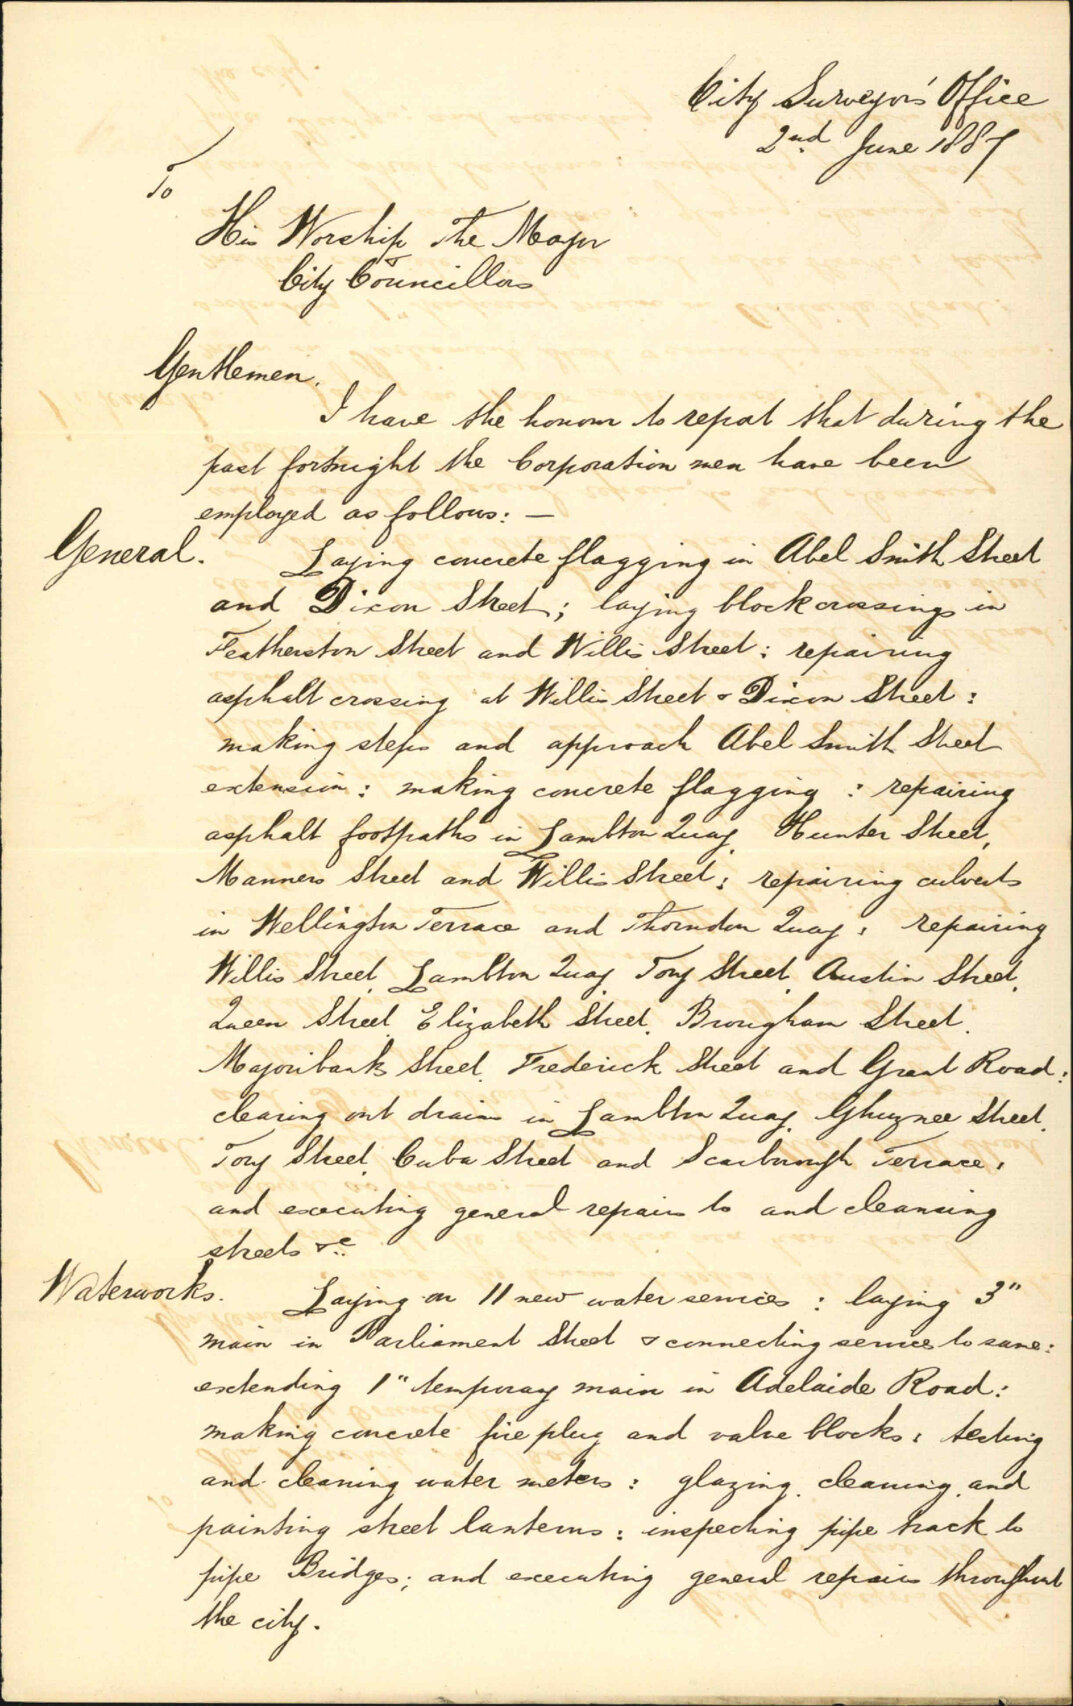 City Surveyor's Office
2nd June 1887
To
His Worship The Mayor
&
City Councillors
Gentlemen.
I have the honour to report that during the
past fortnight the Corporation men have been
employed as follows: —
General. Laying concrete flagging in Abel Smith Street
and Dixon Street; laying block crossings in
Featherston Street and Willis Street: repairing
asphalt crossing at Willis Street & Dixon Street:
making steps and approach Abel Smith Street
extension: making concrete flagging: repairing
asphalt footpaths in Lambton Quay, Hunter Street,
Manners Street and Willis Street: repairing culverts
in Wellington Terrace and Thorndon Quay: repairing
Willis Street, Lambton Quay, Tory Street, Austin Street,
Queen Street, Elizabeth Street, Brougham Street,
Majoribanks Street, Frederick Street and Grant Road:
clearing out drains in Lambton Quay, Ghuznee Street,
Tory Street, Cuba Street and Scarborough Terrace:
and executing general repairs to and cleansing
streets &c.
Waterworks. Laying on 11 new water services: laying 3"
main in Parliament Street & connecting services to same:
extending 1" temporary main in Adelaide Road:
making concrete fire plug and valve blocks: testing
and cleaning water meters: glazing, cleaning, and
painting street lanterns: inspecting pipe track to
pipe Bridges; and executing general repairs throughout
the city.